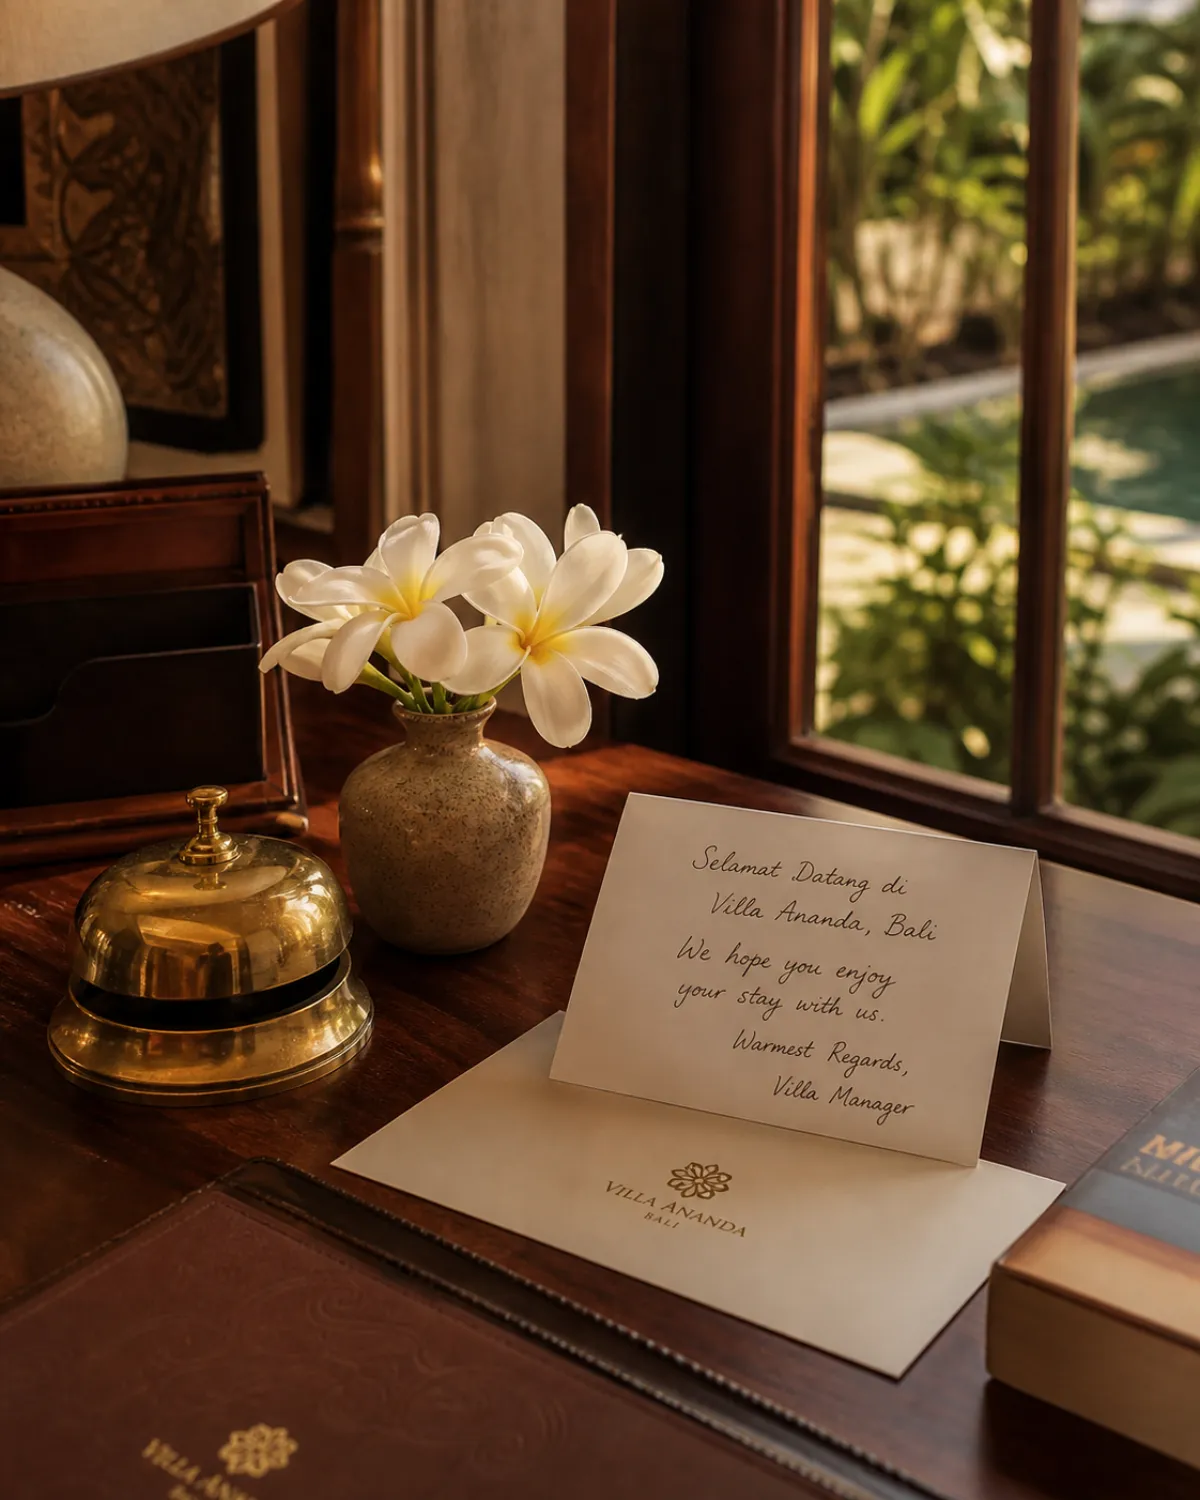 Selamat Datang di
Villa Ananda, Bali
We hope you enjoy
your stay with us.
Warmest Regards,
Villa Manager
VILLA ANANDA
BALI
VILLA